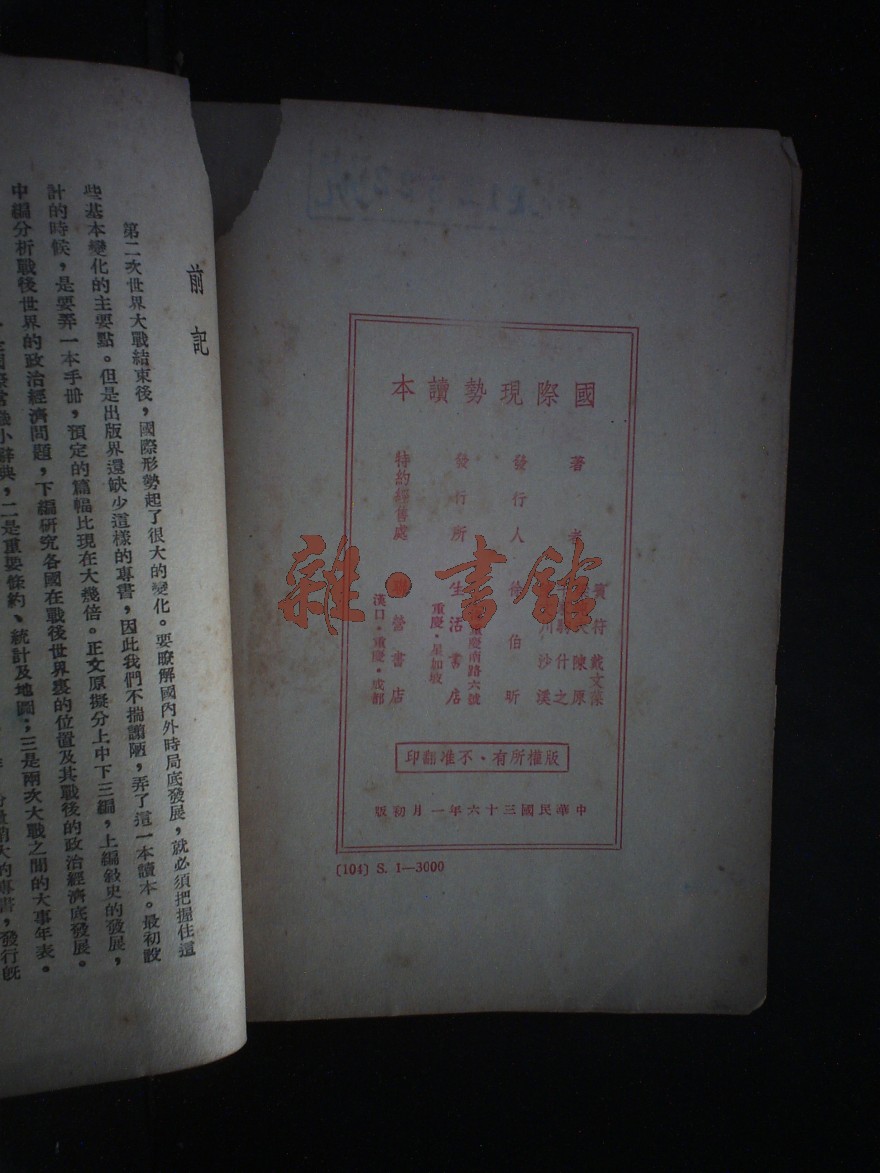 國際現勢讀本
著者
戴文葆
陳原
什之
沙溪
發行人 徐伯昕
發行所 生活書店
重慶南路六號
重慶·星加坡
特約經售處 營書店
漢口·重慶·成都
版權所有·不准翻印
中華民國三十六年一月初版
(104) S. 1—3000
雜·書館
前記
第二次世界大戰結束後，國際形勢起了很大的變化。要瞭解國內外時局底發展，就必須把握住這
些基本變化的主要點。但是出版界還缺少這樣的專書，因此我們不揣謭陋，弄了這一本讀本。最初設
計的時候，是要弄一本手册，預定的篇幅比現在大幾倍。正文原擬分上中下三編，上編敍史的發展，
中編分析戰後世界的政治經濟問題，下編研究各國在戰後世界裏的位置及其戰後的政治經濟底發展。
小辭典，二是重要條約、統計及地圖；三是兩次大戰之間的大事年表。
大的專書，發行旣